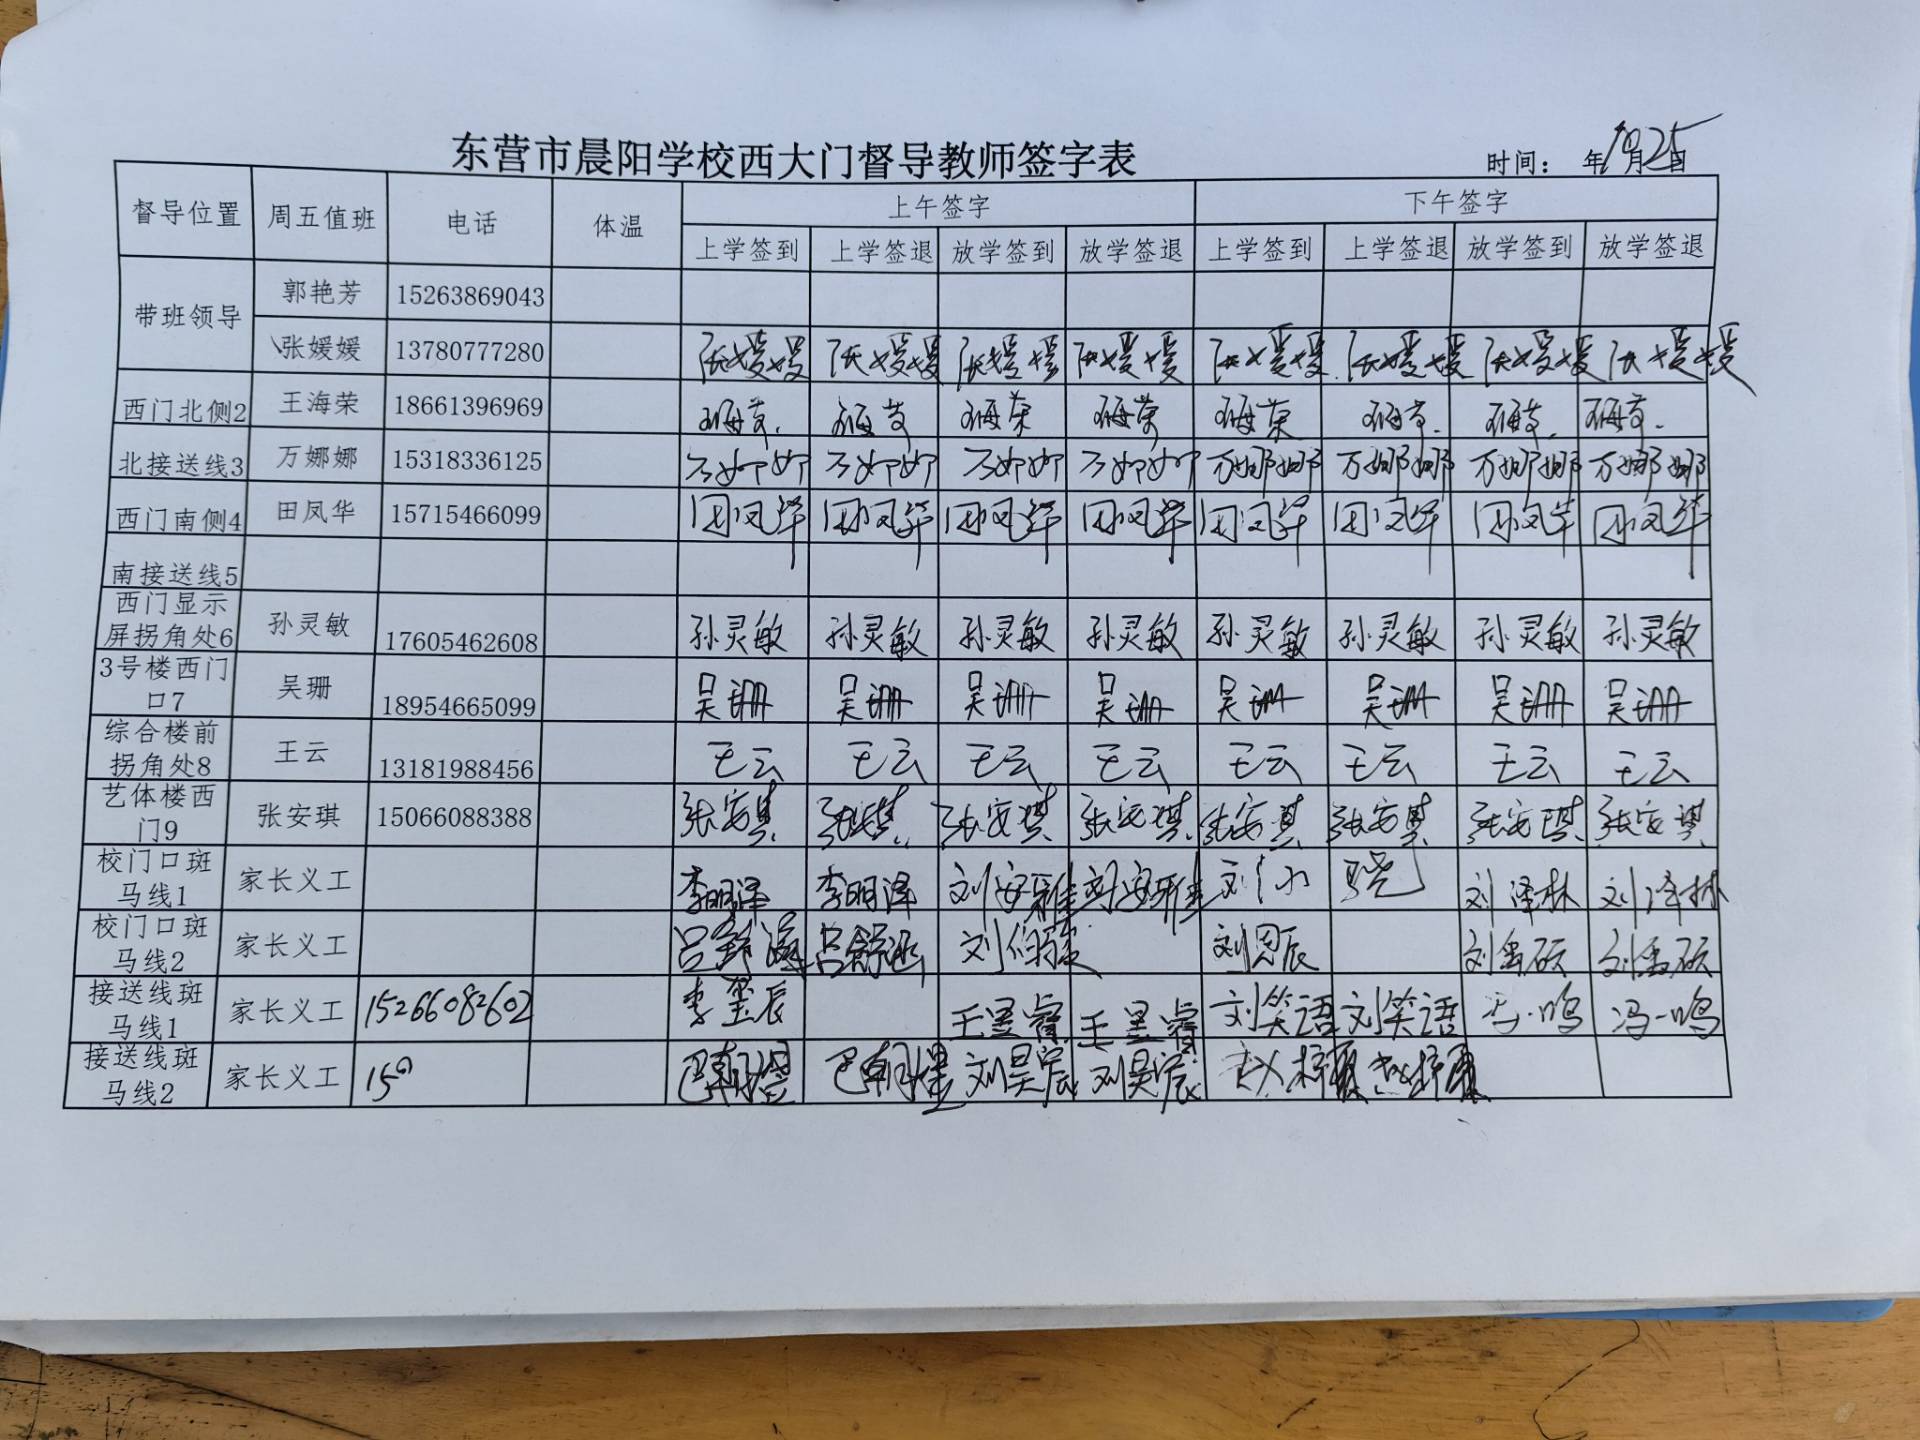 东营市晨阳学校西大门督导教师签字表
时间： 年10月25日
督导位置 周五值班 电话 体温 上午签字 下午签字
上学签到 上学签退 放学签到 放学签退 上学签到 上学签退 放学签到 放学签退
带班领导 郭艳芳 15263869043
张媛媛 13780777280 张媛媛 张媛媛 张媛媛 张媛媛 张媛媛 张媛媛 张媛媛 张媛媛
西门北侧2 王海荣 18661396969 王海荣 王海荣 王海荣 王海荣 王海荣 王海荣 王海荣 王海荣
北接送线3 万娜娜 15318336125 万娜娜 万娜娜 万娜娜 万娜娜 万娜娜 万娜娜 万娜娜 万娜娜
西门南侧4 田凤华 15715466099 田凤华 田凤华 田凤华 田凤华 田凤华 田凤华 田凤华 田凤华
南接送线5
西门显示屏拐角处6 孙灵敏 17605462608 孙灵敏 孙灵敏 孙灵敏 孙灵敏 孙灵敏 孙灵敏 孙灵敏 孙灵敏
3号楼西门口7 吴珊 18954665099 吴珊 吴珊 吴珊 吴珊 吴珊 吴珊 吴珊 吴珊
综合楼前拐角处8 王云 13181988456 王云 王云 王云 王云 王云 王云 王云 王云
艺体楼西门9 张安琪 15066088388 张安琪 张安琪 张安琪 张安琪 张安琪 张安琪 张安琪 张安琪
校门口斑马线1 家长义工 李明泽 李明泽 刘安雅 刘安雅 刘泽林 刘泽林
校门口斑马线2 家长义工 吕舒涵 吕舒涵 刘伯骏 刘恩辰 刘禹硕 刘禹硕
接送线斑马线1 家长义工 15266082602 李玺辰 王昱睿 王昱睿 刘笑语 刘笑语 冯一鸣
接送线斑马线2 家长义工 150 巴朝煜 巴朝煜 刘昊宸 刘昊宸